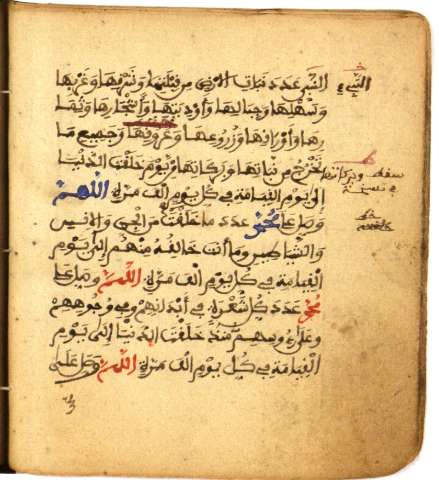 النبيء عدد نبات الارض من قبلتها وشرقها وغربها
وسهلها وجبالها وأوديتها وأشجارها وثما
رها وأوراقها وزروعها وعروقها وجميع ما
يخرج من نباتها وبركاتها من يوم خلقت الدنيا
إلى يوم القيامة في كل يوم ألف مرة اللهم
وصل على محمد عدد ما خلقت من الجن والانس
والشياطين وما أنت خالقه منهم إلى يوم
القيامة في كل يوم ألف مرة اللهم وصل على
محمد عدد كل شعرة في أبدانهم وفي وجوههم
وعلى رءوسهم منذ خلقت الدنيا إلى يوم
القيامة في كل يوم ألف مرة اللهم وصل على